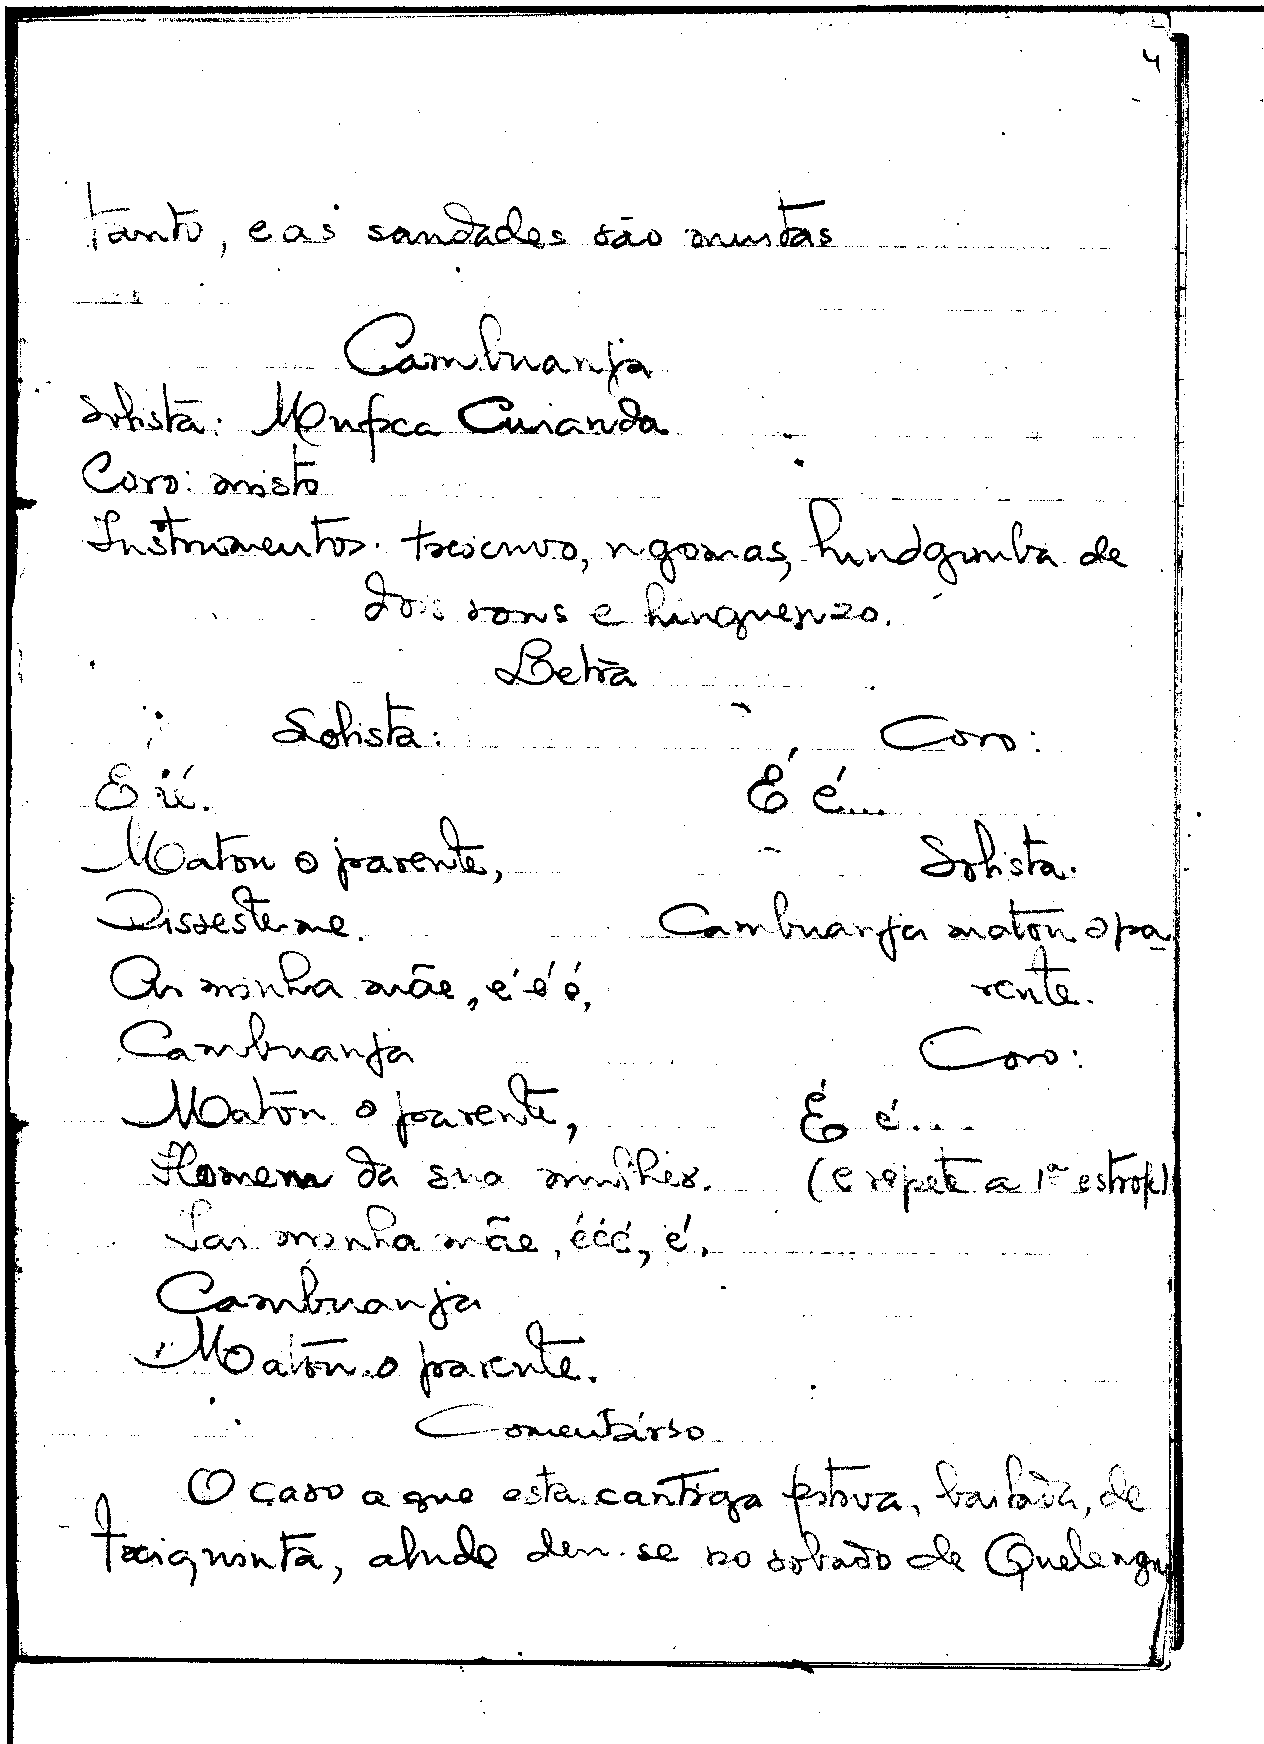 4
tanto, e as saudades são muitas
Cambuanja
Solista: Mufca Cuianda
Coro: misto
Instrumentos: txicuvo, ngomas, hindgumba de
dois sons e hinguenzo.
Letra
Solista:
E ié.
Matou o parente,
Disseste-me.
Ai minha mãe, é é é,
Cambuanja
Matou o parente,
Homem da sua mulher.
Iai minha mãe, ééé, é.
Cambuanja
Matou o parente.
Coro:
É é...
Solista.
Cambuanja matou o pa-
rente.
Coro:
É é....
(e repete a 1ª estrofe)
Comentário
O caso a que esta cantiga festiva, bailada, de
txiquinta, alude deu-se no sobado de Quelengu